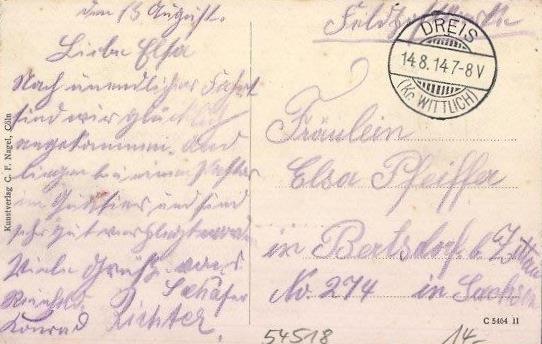 den 13 August.
Liebe Elsa
Nach unendlicher Fahrt
sind wir glücklich
angekommen. und
liegen bei einem
im Quartier und sind
sehr gut verpflegt worden
Viele Grüße von
Richter Schäfer
Konrad Richter.
Kunstverlag C. F. Nagel, Cöln
Feldpostkarte
DREIS
14.8.14.7-8V
(Kr. WITTLICH)
Fräulein
Elsa Pfeiffer
in Bertsdorf b. Zittau
No. 274 in Sachsen
C 5464 11
54518
14.-